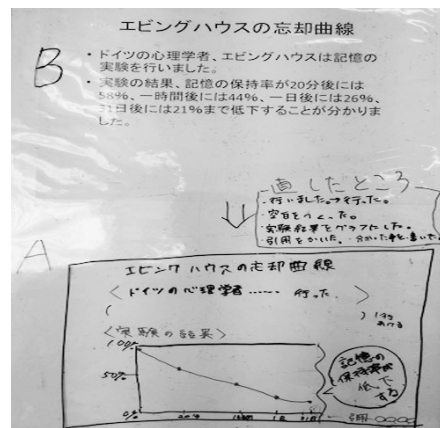 エビングハウスの忘却曲線
B
・ドイツの心理学者、エビングハウスは記憶の
実験を行いました。
・実験の結果、記憶の保持率が20分後には
58%、一時間後には44%、一日後には26%、
31日後には21%まで低下することが分かりま
した。
直しだところ
・行いました→行った。
・空白をつくった。
・実験結果をグラフにした。
・引用をかいた。
A
エビングハウスの忘却曲線
＜ドイツの心理学者…… 行った ＞
＜実験の結果＞
100%
50%
0%
記憶の
保持率が
低下
する
引用